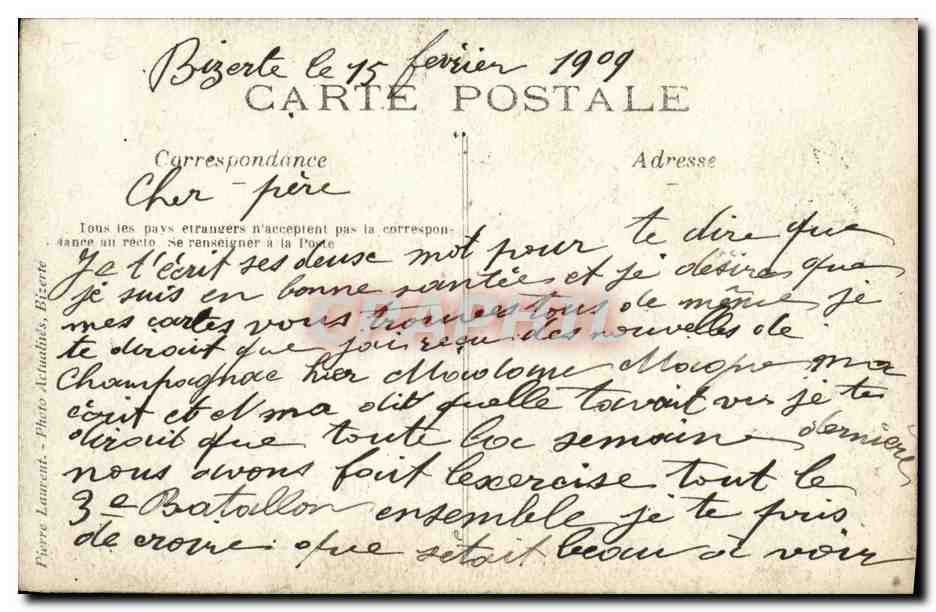 Bizerte le 15 février 1909
CARTE POSTALE
Correspondance
Adresse
Cher père
Tous les pays etrangers n'acceptent pas la correspon-
dance au recto Se renseigner à la Poste
Je t'écrit ses deuse mot pour te dire que
je suis en bonne santées et je désires que
mes cartes vous trouves tous de même je
te diroit que jai reçu des nouvelles de
Champagnac hier Madame Magne ma
écrit et ma dit quelle tavait vu je te
diroit que toute la semaine dernière
nous avons fait lexercise tout le
3e Batallon ensemble je te pris
de croire que setait beau a voir
Pierre Laurent. - Photo Actualités, Bizerte